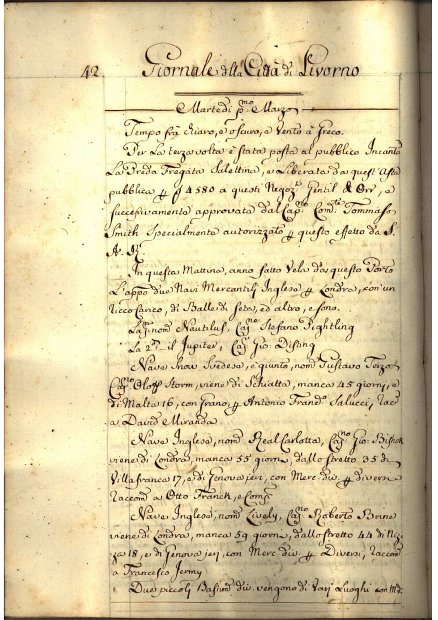 42. Giornale della Città di Livorno
Martedi pmo Marzo
Tempo frà chiaro, e oscuro, e Vento à Greco.
Per La terza volta è stata posta al pubblico Incanto
La Preda Fregata Salettina, e Liberata da quest' Asta
pubblica p 4580 a questi Negozti Gentil & Orr, e
succesivamente approvata dal Capno Comte Tommaso
Smith Specialmente autorizzato p questo effetto da S.
A. R.
In questa Mattina, anno fatto Vela da questo Porto
L'appo due Navi Mercantili Inglese p Londra, con un
ricco Carico, di Balle di seta, ed altro, e sono.
La pma nomta Nautilus, Capno Stefano Rightling
La 2da il Jupiter, Capno Gio: Disting
Nave Snow Svedese, è giunto, nomto Gustavo Terzo
Capno Oloff Storm, viene di Schiatta, manca 45 giorni, e
di Malta 16, con Grano, p Antonio Franco Salucci, Racc
a David Miranda
Nave Inglese, nomta Real Carlotta, Capno Gio: Bishop
viene di Londra, manca 55 giorni, dallo stretto 35 di
Villafranca 17, e di Genova jeri, con Merc: div: p diversi
Raccom a Otto Franck, e Compi
Nave Inglese, nomta Lively, Capno Roberto Brine
viene di Londra, manca 59 giorni, dallo stretto 44 di Niz
za 18, e di Genova jeri, con Merc: div: p Diversi, Raccom
a Francesco Jermy
Due piccoli Bastimti div: vengono di Varj Luoghi con Me: